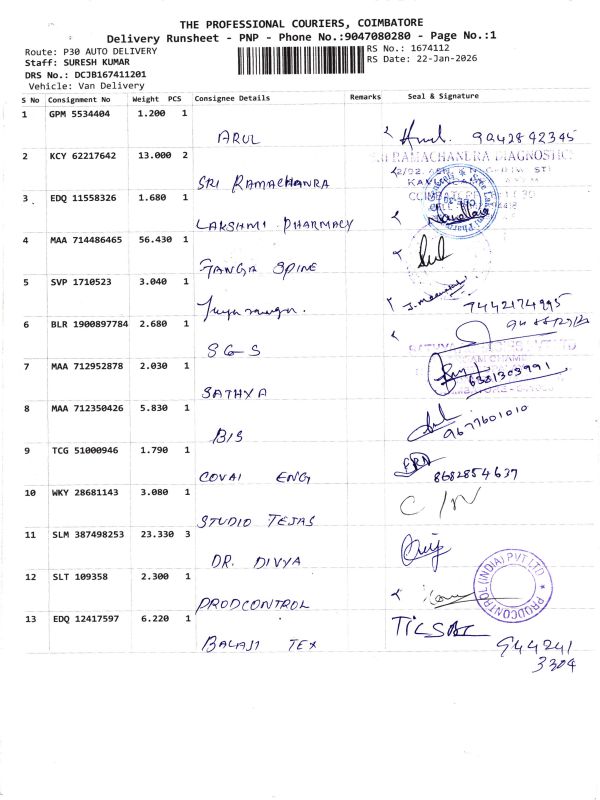 THE PROFESSIONAL COURIERS, COIMBATORE
Delivery Runsheet - PNP - Phone No.:9047080280 - Page No.:1
Route: P30 AUTO DELIVERY
RS No.: 1674112
Staff: SURESH KUMAR
RS Date: 22-Jan-2026
DRS No.: DCJB167411201
Vehicle: Van Delivery
S No Consignment No Weight PCS Consignee Details Remarks Seal & Signature
1 GPM 5534404 1.200 1
ARUL 9042842345
2 KCY 62217642 13.000 2
SRI RAMACHANRA
RAMACHANDRA DIAGNOSTIC
3 EDQ 11558326 1.680 1
LAKSHMI PHARMACY
4 MAA 714486465 56.430 1
GANGA SPINE
5 SVP 1710523 3.040 1
7442174995
6 BLR 1900897784 2.680 1
SGS
7 MAA 712952878 2.030 1
SATHYA 6381303991
8 MAA 712350426 5.830 1
BIS 9677601010
9 TCG 51000946 1.790 1
COVAI ENG 8682854637
10 WKY 28681143 3.080 1
STUDIO TEJAS C/N
11 SLM 387498253 23.330 3
DR. DIVYA
12 SLT 109358 2.300 1
PRODCONTROL
PRODCONTROL (INDIA) PVT LTD
13 EDQ 12417597 6.220 1
BALAJI TEX 944241
3304